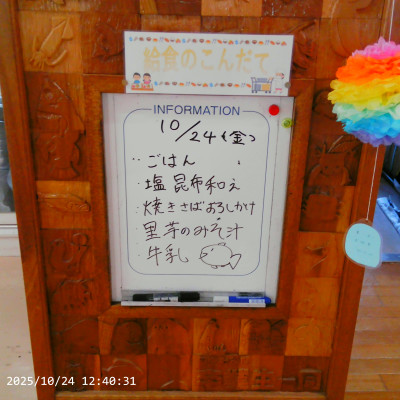 給食のこんだて
INFORMATION
10/24(金)
・ごはん
・塩昆布和え
・焼きさばおろしかけ
・里芋のみそ汁
・牛乳
2025/10/24 12:40:31